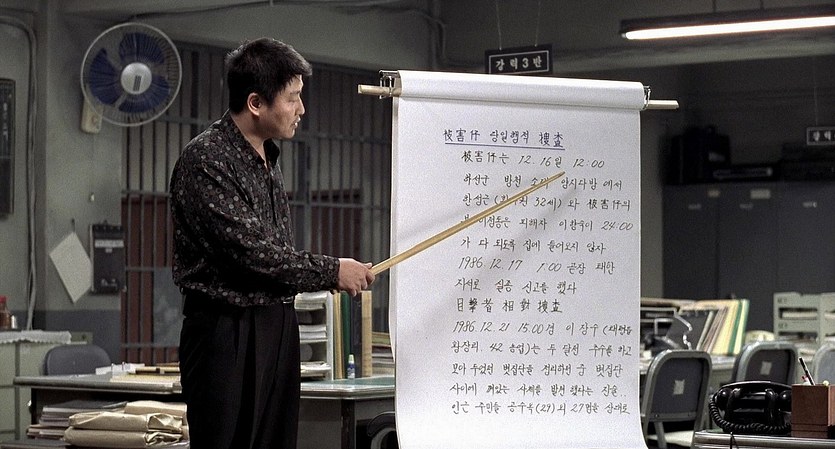 강력3반
被害者 당일행적 捜査
被害者는 12. 16일 12:00
화성군 양지다방 에서
(32세) 와 被害者의
피해자 24:00
가 다 되도록 집에 들어오지 않자
1986. 12. 17 1:00 곧장 태안
지서로 실종 신고를 했다
目擊者 相對 搜査
1986. 12. 21 15:00 경 이 장수 (태안읍
42 농업)는 두 달전 추수를 하고
모아 두었던 볏짚단을 정리하던 중 볏짚단
사이에 껴있는 사체를 발견 했다는 진술..
인근 주민들 (29) 외 27명을 상대로
강력